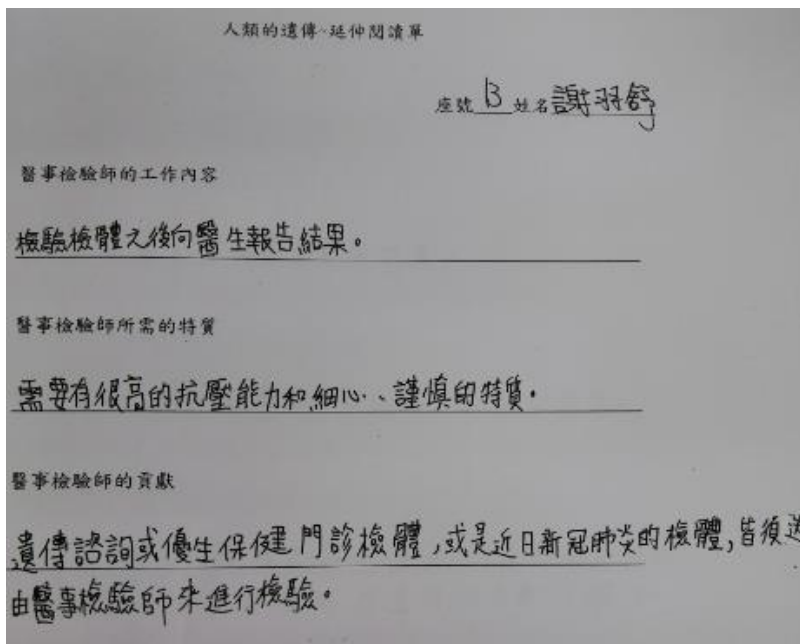 人類的遺傳-延伸閱讀單
座號 13 姓名 謝羽舒
醫事檢驗師的工作內容
檢驗檢體之後向醫生報告結果。
醫事檢驗師所需的特質
需要有很高的抗壓能力和細心、謹慎的特質。
醫事檢驗師的貢獻
遺傳諮詢或優生保健門診檢體,或是近日新冠肺炎的檢體,皆須送
由醫事檢驗師來進行檢驗。